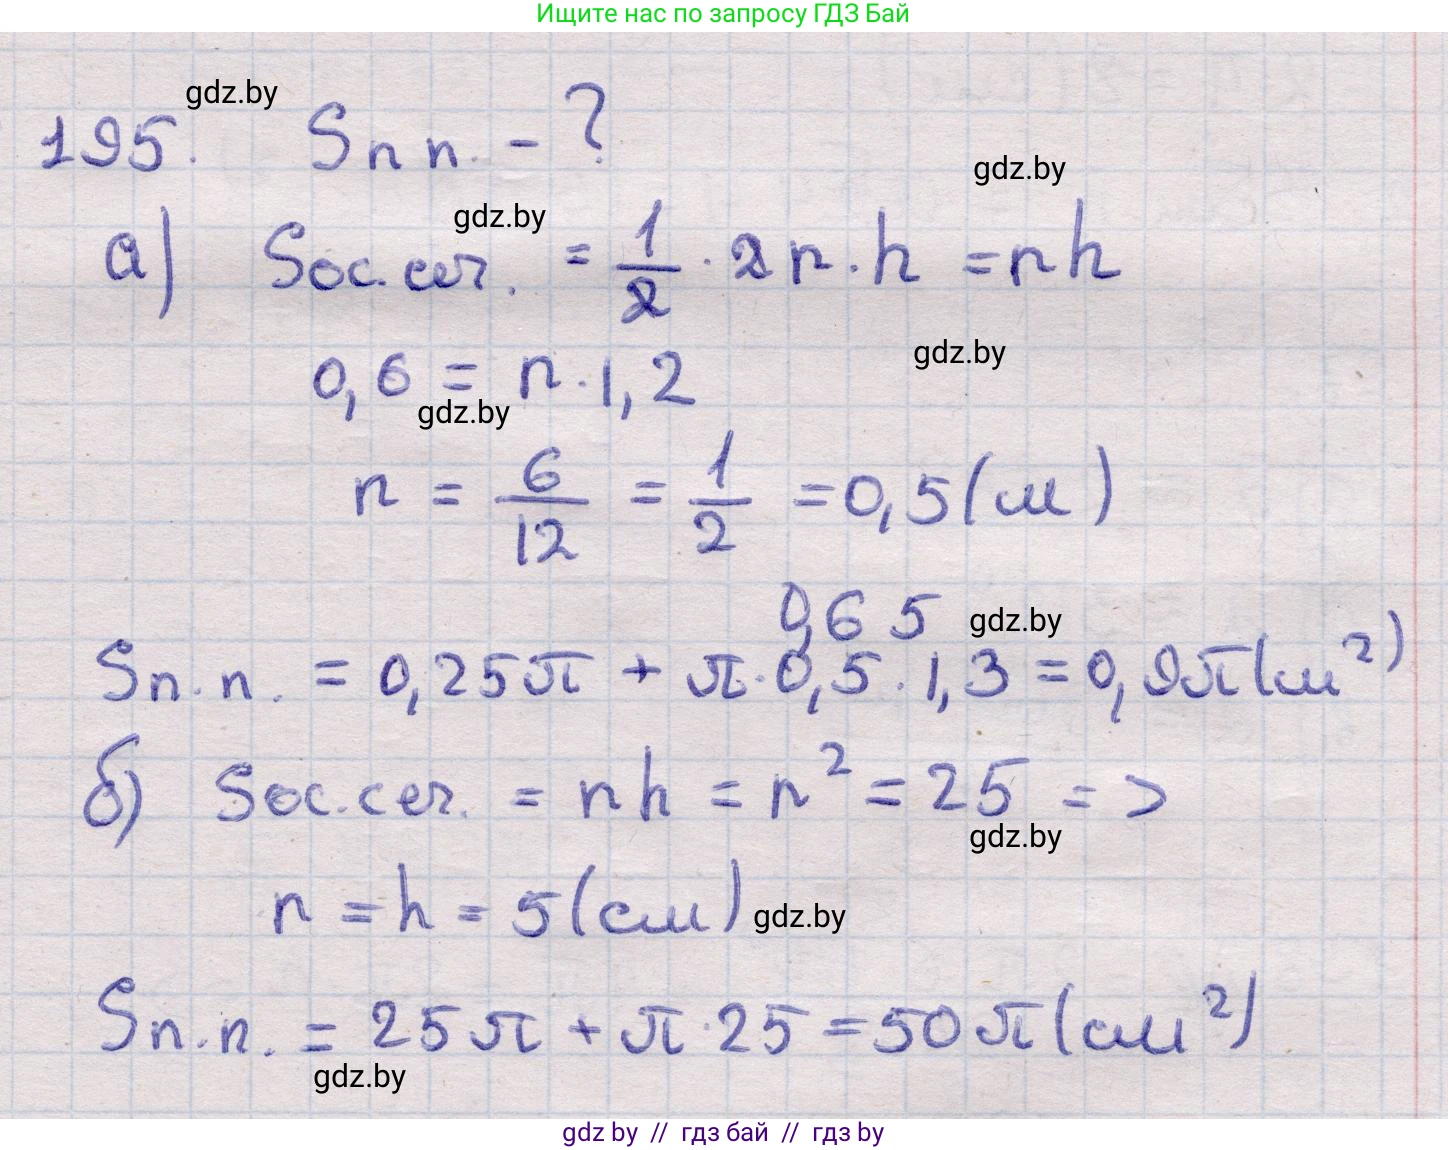 Ищите нас по запросу ГДЗ Бай
gdz.by
195. Sп п. - ?
gdz.by
gdz.by
а) Sос.сеч. = 1/2 · 2r · h = rh
gdz.by
0,6 = r · 1,2
gdz.by
r = 6/12 = 1/2 = 0,5 (м)
0,65 gdz.by
Sп.п. = 0,25π + π · 0,5 · 1,3 = 0,9π (м²)
б) Sос.сеч. = rh = r² = 25 =>
gdz.by
r = h = 5 (см) gdz.by
Sп.п. = 25π + π · 25 = 50π (см²)
gdz.by
gdz by // гдз бай // гдз by